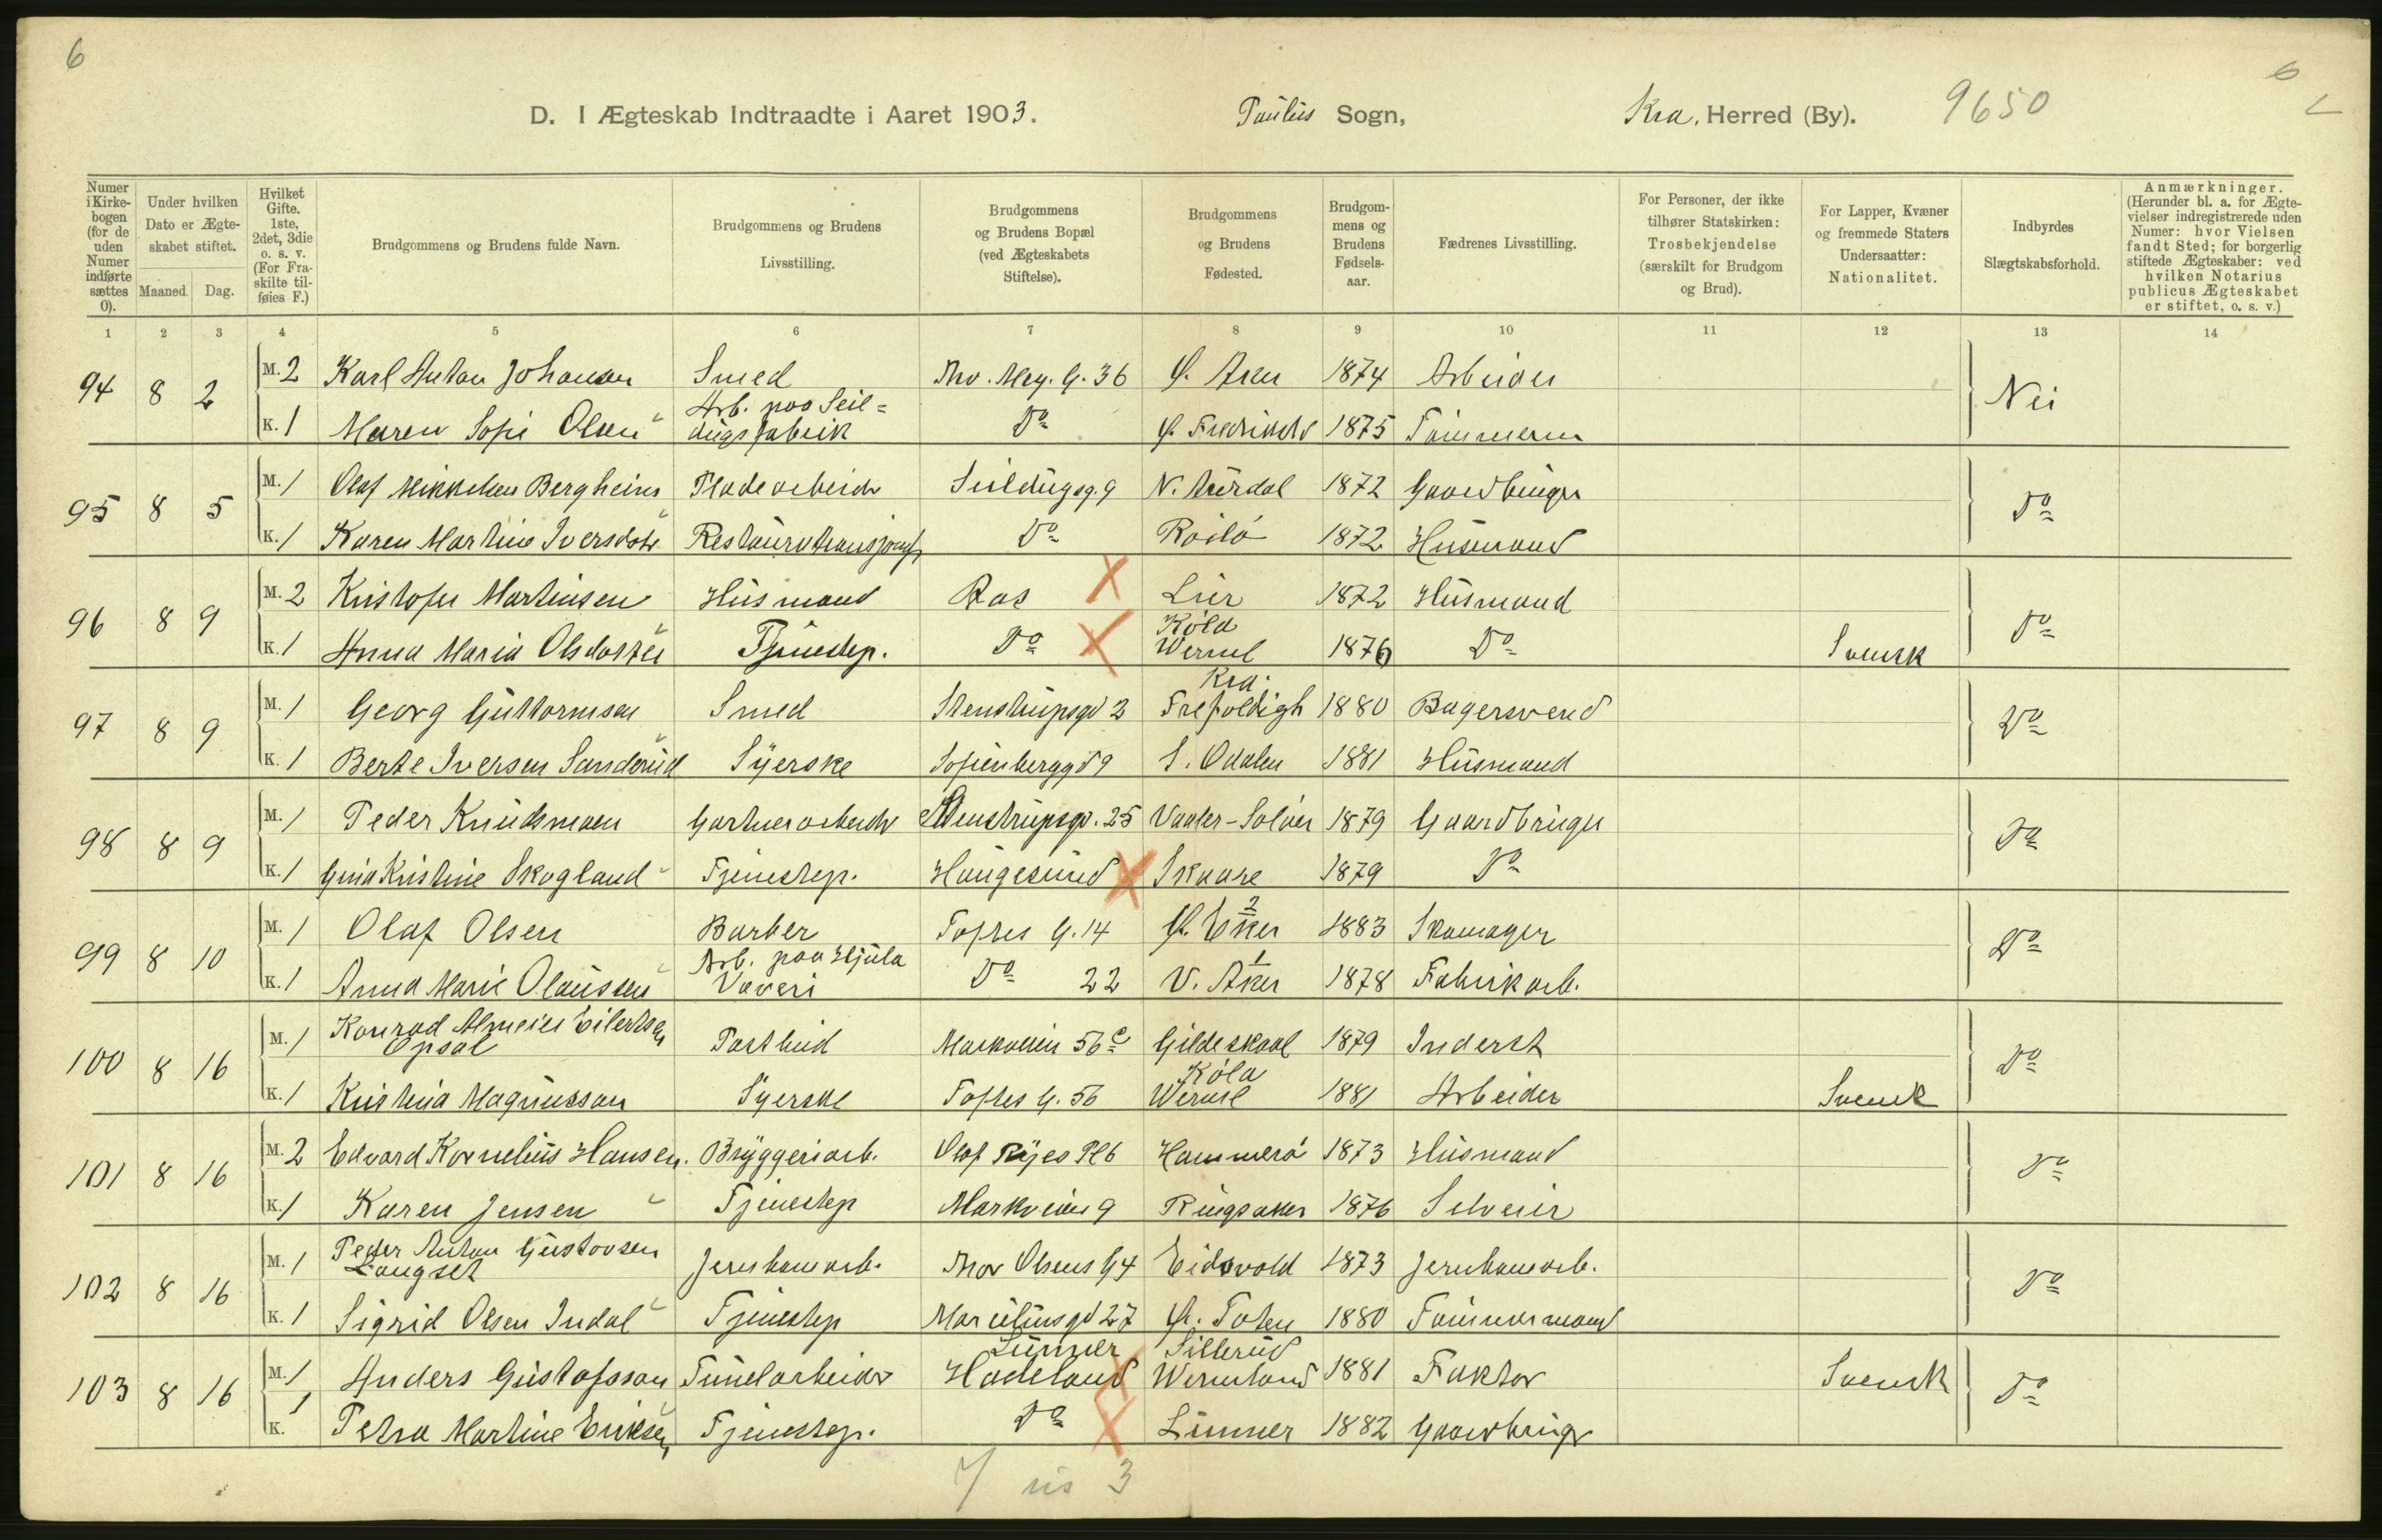 6
6
D. I Ægteskab Indtraadte i Aaret 1903. Paulus Sogn, Kra. Herred (By). 9650
Numer i Kirke-bogen (for de uden Numer indførte sættes 0).
Under hvilken Dato er Ægte-skabet stiftet.
Maaned. Dag.
Hvilket Gifte. 1ste, 2det, 3die o. s. v. (For Fra-skilte til-føies F.)
Brudgommens og Brudens fulde Navn.
Brudgommens og Brudens Livsstilling.
Brudgommens og Brudens Bopæl (ved Ægteskabets Stiftelse).
Brudgommens og Brudens Fødested.
Brudgom-mens og Brudens Fødsels-aar.
Fædrenes Livsstilling.
For Personer, der ikke tilhører Statskirken: Trosbekjendelse (særskilt for Brudgom og Brud).
For Lapper, Kvæner og fremmede Staters Undersaatter: Nationalitet.
Indbyrdes Slægtskabsforhold.
Anmærkninger. (Herunder bl. a. for Ægte-vielser indregistrerede uden Numer: hvor Vielsen fandt Sted; for borgerlig stiftede Ægteskaber: ved hvilken Notarius publicus Ægteskabet er stiftet, o. s. v.)
1 2 3 4 5 6 7 8 9 10 11 12 13 14
94 8 2 M. 2 Karl Anton Johansen Smed Thv. Mey. G. 36 Ø. Aker 1874 Arbeider Nei
K. 1 Maren Sofie Olsen Arb. paa Seil=dugsfabrik Do Ø. Fredrikst 1875 Tømmerm
95 8 5 M. 1 Olaf Mikkelsen Bergheim Pladearbeider Seildugsg. 9 N. Aurdal 1872 Gaardbruger Do
K. 1 Karen Martine Iversdotr Restaurationsjomfr Do 1872 Husmand
96 8 9 M. 2 Kristofer Martinsen Husmand Aas Lier 1872 Husmand Do
K. 1 Anna Maria Olsdotter Tjenestep. Do Køla Werml 1876 Do Svensk
97 8 9 M. 1 Georg Guttormsen Smed Stenstrupsgd 2 Kra. Trefoldigh 1880 Bagersvend Do
K. 1 Berte Iversen Sanderud Syerske Sofienberggd 9 S. Odalen 1881 Husmand
98 8 9 M. 1 Peder Knudsmoen Gartnerarbeider Stenstrupsgd. 25 Vaaler-Soløer 1879 Gaardbruger Do
K. 1 Gina Kristine Skogland Tjenestep. Haugesund Skaare 1879 Do
99 8 10 M. 1 Olaf Olsen Barber Toftes G. 14 Ø. Eker 2 1883 Skomager Do
K. 1 Anna Marie Olaussen Arb. paa Hjula Væveri Do 22 V. Aker 1 1878 Fabrikarb.
100 8 16 M. 1 Konrad Almeier Eilertsen Opsal Postbud Markveien 56 c Gildeskaal 1879 Inderst Do
K. 1 Kristina Magnusson Syerske Toftes G. 56 Køla Werml 1881 Arbeider Svensk
101 8 16 M. 2 Edvard Kornelius Hansen. Bryggeriarb. Olaf Ryes Pl 6 Hammerø 1873 Husmand Do
K. 1 Karen Jensen Tjenestep Markveien 9 Ringsaker 1876 Selveier
102 8 16 M. 1 Peder Anton Gustavsen Langset Jernbanearb. Thor Olsens G 4 Eidsvold 1873 Jernbanearb. Do
K. 1 Sigrid Olsen Indal Tjenestep Marcelius gd 27 Ø. Toten 1880 Tømmermand
103 8 16 M. 1 Anders Gustafsson Tunelarbeider Lunner Hadeland Sillerud Wermland 1881 Faktor Svensk Do
K. 1 Petra Martine Eriksen Tjenestep. Do Lunner 1882 Gaardbruger
7 3